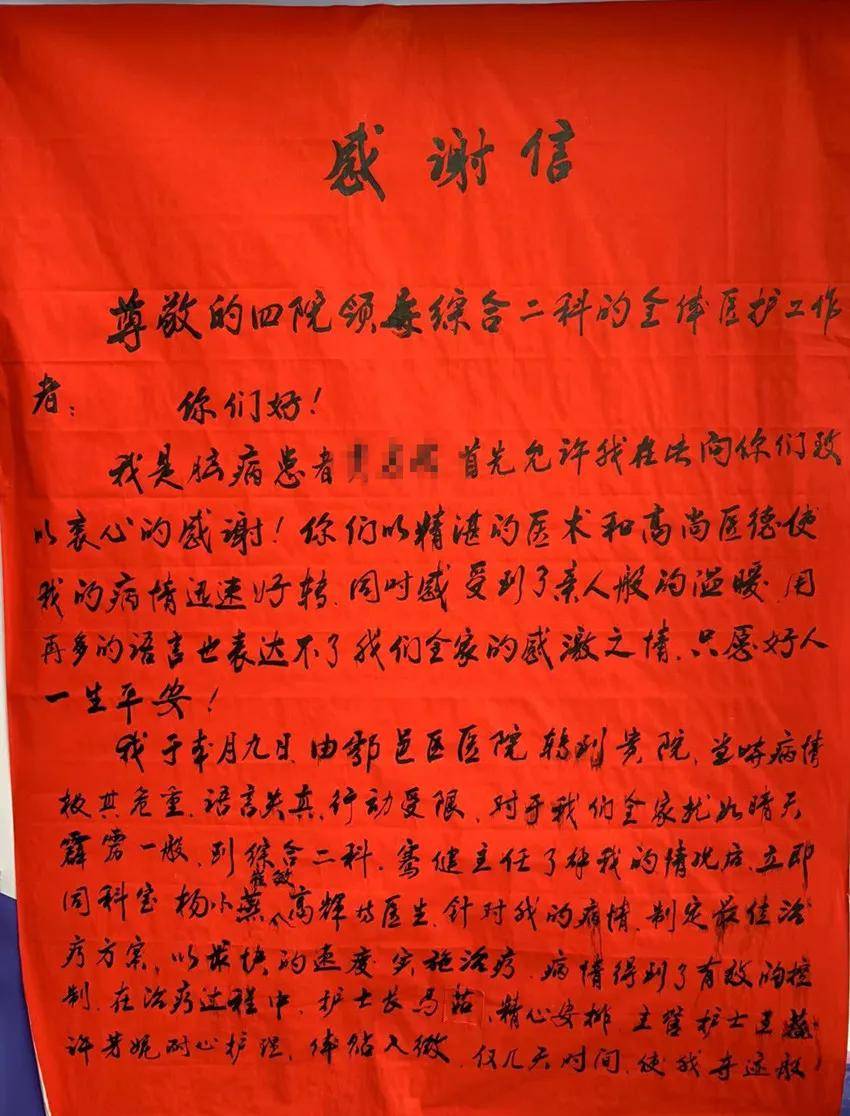 感谢信
尊敬的四院领导综合二科的全体医护工作
者: 你们好!
我是脑病患者 首先允许我在此向你们致
以衷心的感谢!你们以精湛的医术和高尚医德使
我的病情迅速好转.同时感受到了亲人般的温暖.用
再多的语言也表达不了我们全家的感激之情.只愿好人
一生平安!
我于本月九日由鄠邑区医院转到贵院,当时病情
极其危重.语言失真,行动受限.对于我们全家犹如晴天
霹雳一般.到综合二科.骞健主任了解我的情况后,立即
同科室杨小燕崔敏高辉等医生.针对我的病情.制定最佳治
疗方案,以最快的速度实施治疗.病情得到了有效的控
制.在治疗过程中.护士长马茹,精心安排.主管护士王
许芳妮耐心护理,体贴入微.仅几天时间.使我奇迹般